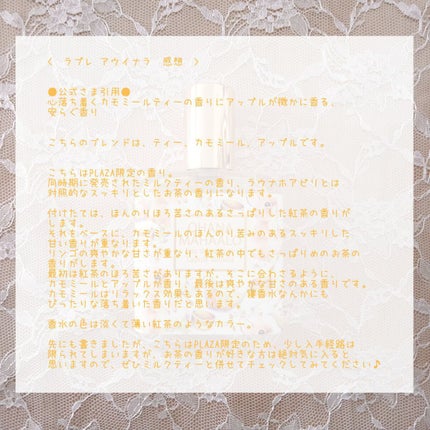 < ラブレ アウイナラ 感想 >
●公式さま引用●
心落ち着くカモミールティーの香りにアップルが微かに香る、
安らぐ香り
こちらのブレンドは、ティー、カモミール、アップルです。
こちらはPLAZA限定の香り。
同時期に発売されたミルクティーの香り、ラウナホアピリとは
対照的なスッキリとしたお茶の香りになります。
付けたては、ほんのりほろ苦さのあるさっぱりした紅茶の香りが
します。
それをベースに、カモミールのほんのり苦みのあるスッキリした
甘い香りが重なります。
リンゴの爽やかな甘さが重なり、紅茶の中でもさっぱりめのお茶の
香りがします。
最初は紅茶のほろ苦さがありますが、そこに合わさるように、
カモミールとアップルが香り、最後は爽やかな甘さのある香りです。
カモミールはリラックス効果もあるので、寝香水なんかにも
ぴったりな落ち着いた香りだと思います。
香水の色は淡くて薄い紅茶のようなカラー。
先にも書きましたが、こちらはPLAZA限定のため、少し入手経路は
限られてしまいますが、お茶の香りが好きな方は絶対気に入ると
思いますので、ぜひミルクティーと併せてチェックしてみてください♪
MAHAALOI